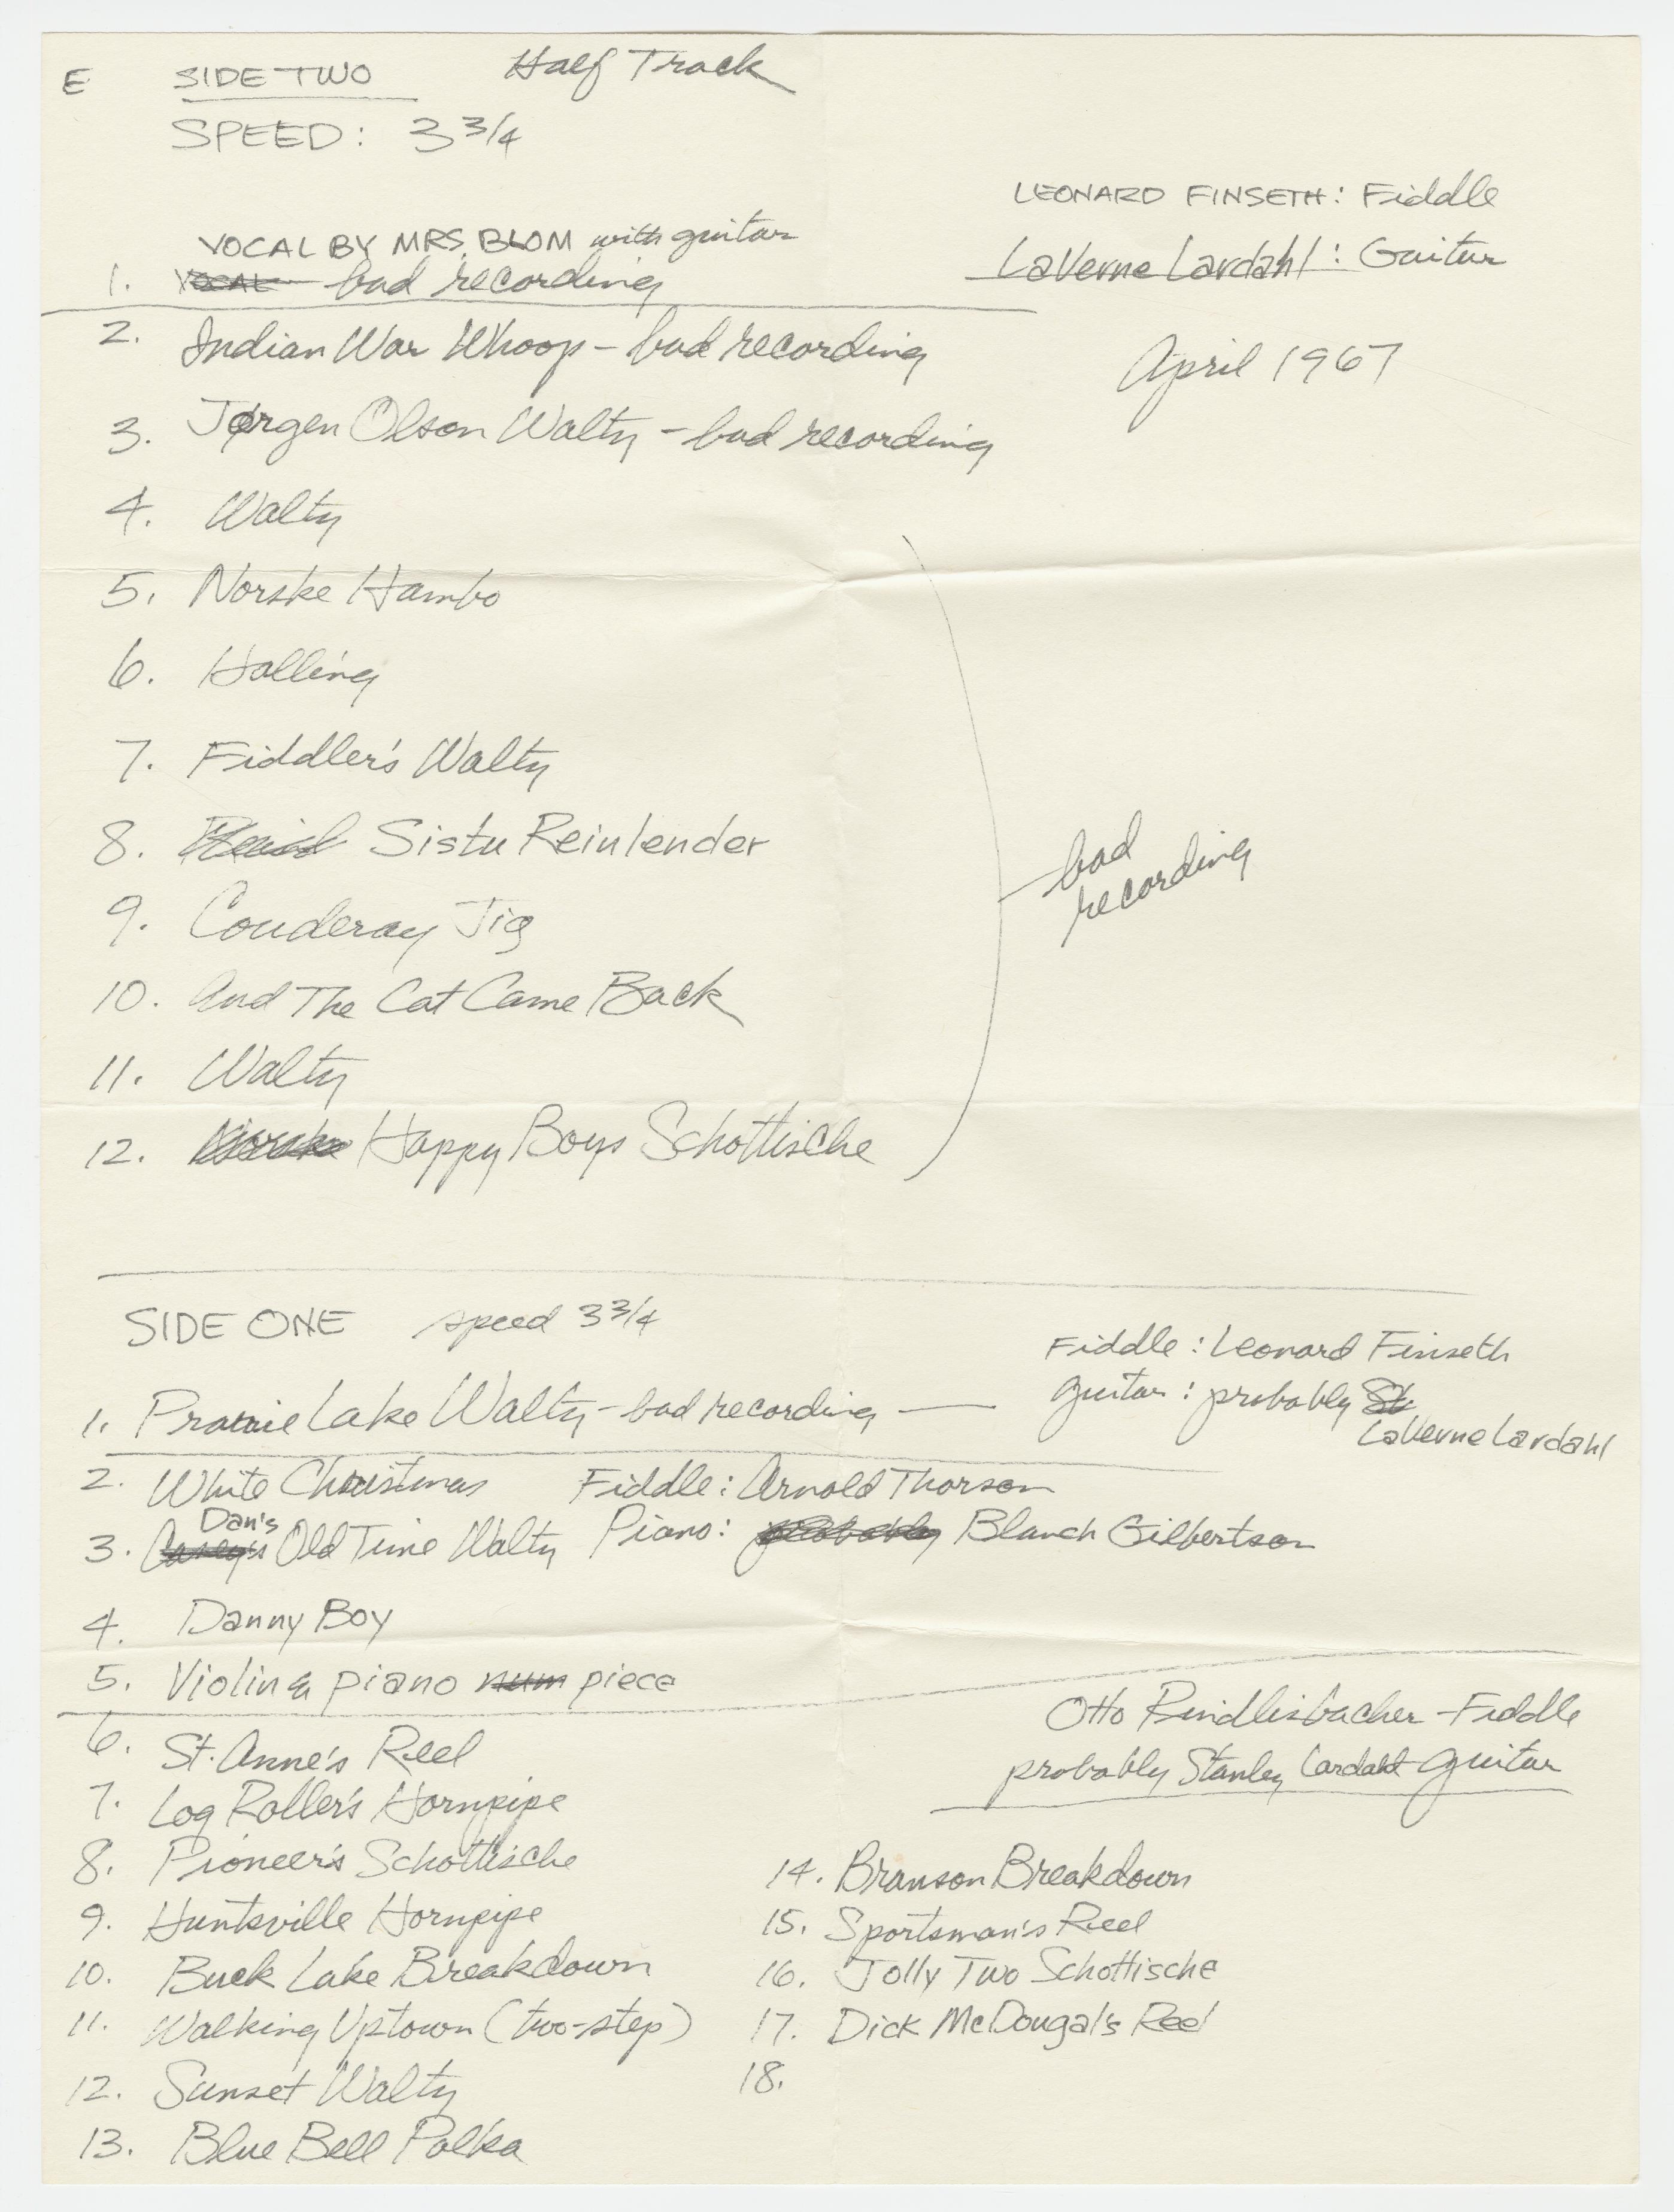 E SIDE TWO Half Track
SPEED: 3 3/4
LEONARD FINSETH: Fiddle
LaVerne Lardahl: Guitar
April 1967
VOCAL BY MRS. BLOM with guitar
1. VOCAL - bad recording
2. Indian War Whoop - bad recording
3. Jørgen Olson Waltz - bad recording
4. Waltz
5. Norske Hambo
6. Halling
7. Fiddler's Waltz
8. Sistu Reinlender
9. Couderay Jig
10. And The Cat Came Back
11. Waltz
12. Norske Happy Boys Schottische
bad
recording
SIDE ONE speed 3 3/4
Fiddle: Leonard Finseth
guitar: probably St
LaVerne Lardahl
1. Prairie Lake Waltz - bad recording
2. White Christmas Fiddle: Arnold Thorson
Dan's
3. Casey's Old Time Waltz Piano: probably Blanch Gilbertson
4. Danny Boy
5. Violin & piano num piece
Otto Rindlisbacher - Fiddle
probably Stanley Lardahl guitar
6. St. Anne's Reel
7. Log Roller's Hornpipe
8. Pioneer's Schottische
9. Huntsville Hornpipe
10. Buck Lake Breakdown
11. Walking Uptown (two-step)
12. Sunset Waltz
13. Blue Bell Polka
14. Branson Breakdown
15. Sportsman's Reel
16. Jolly Two Schottische
17. Dick McDougal's Reel
18.